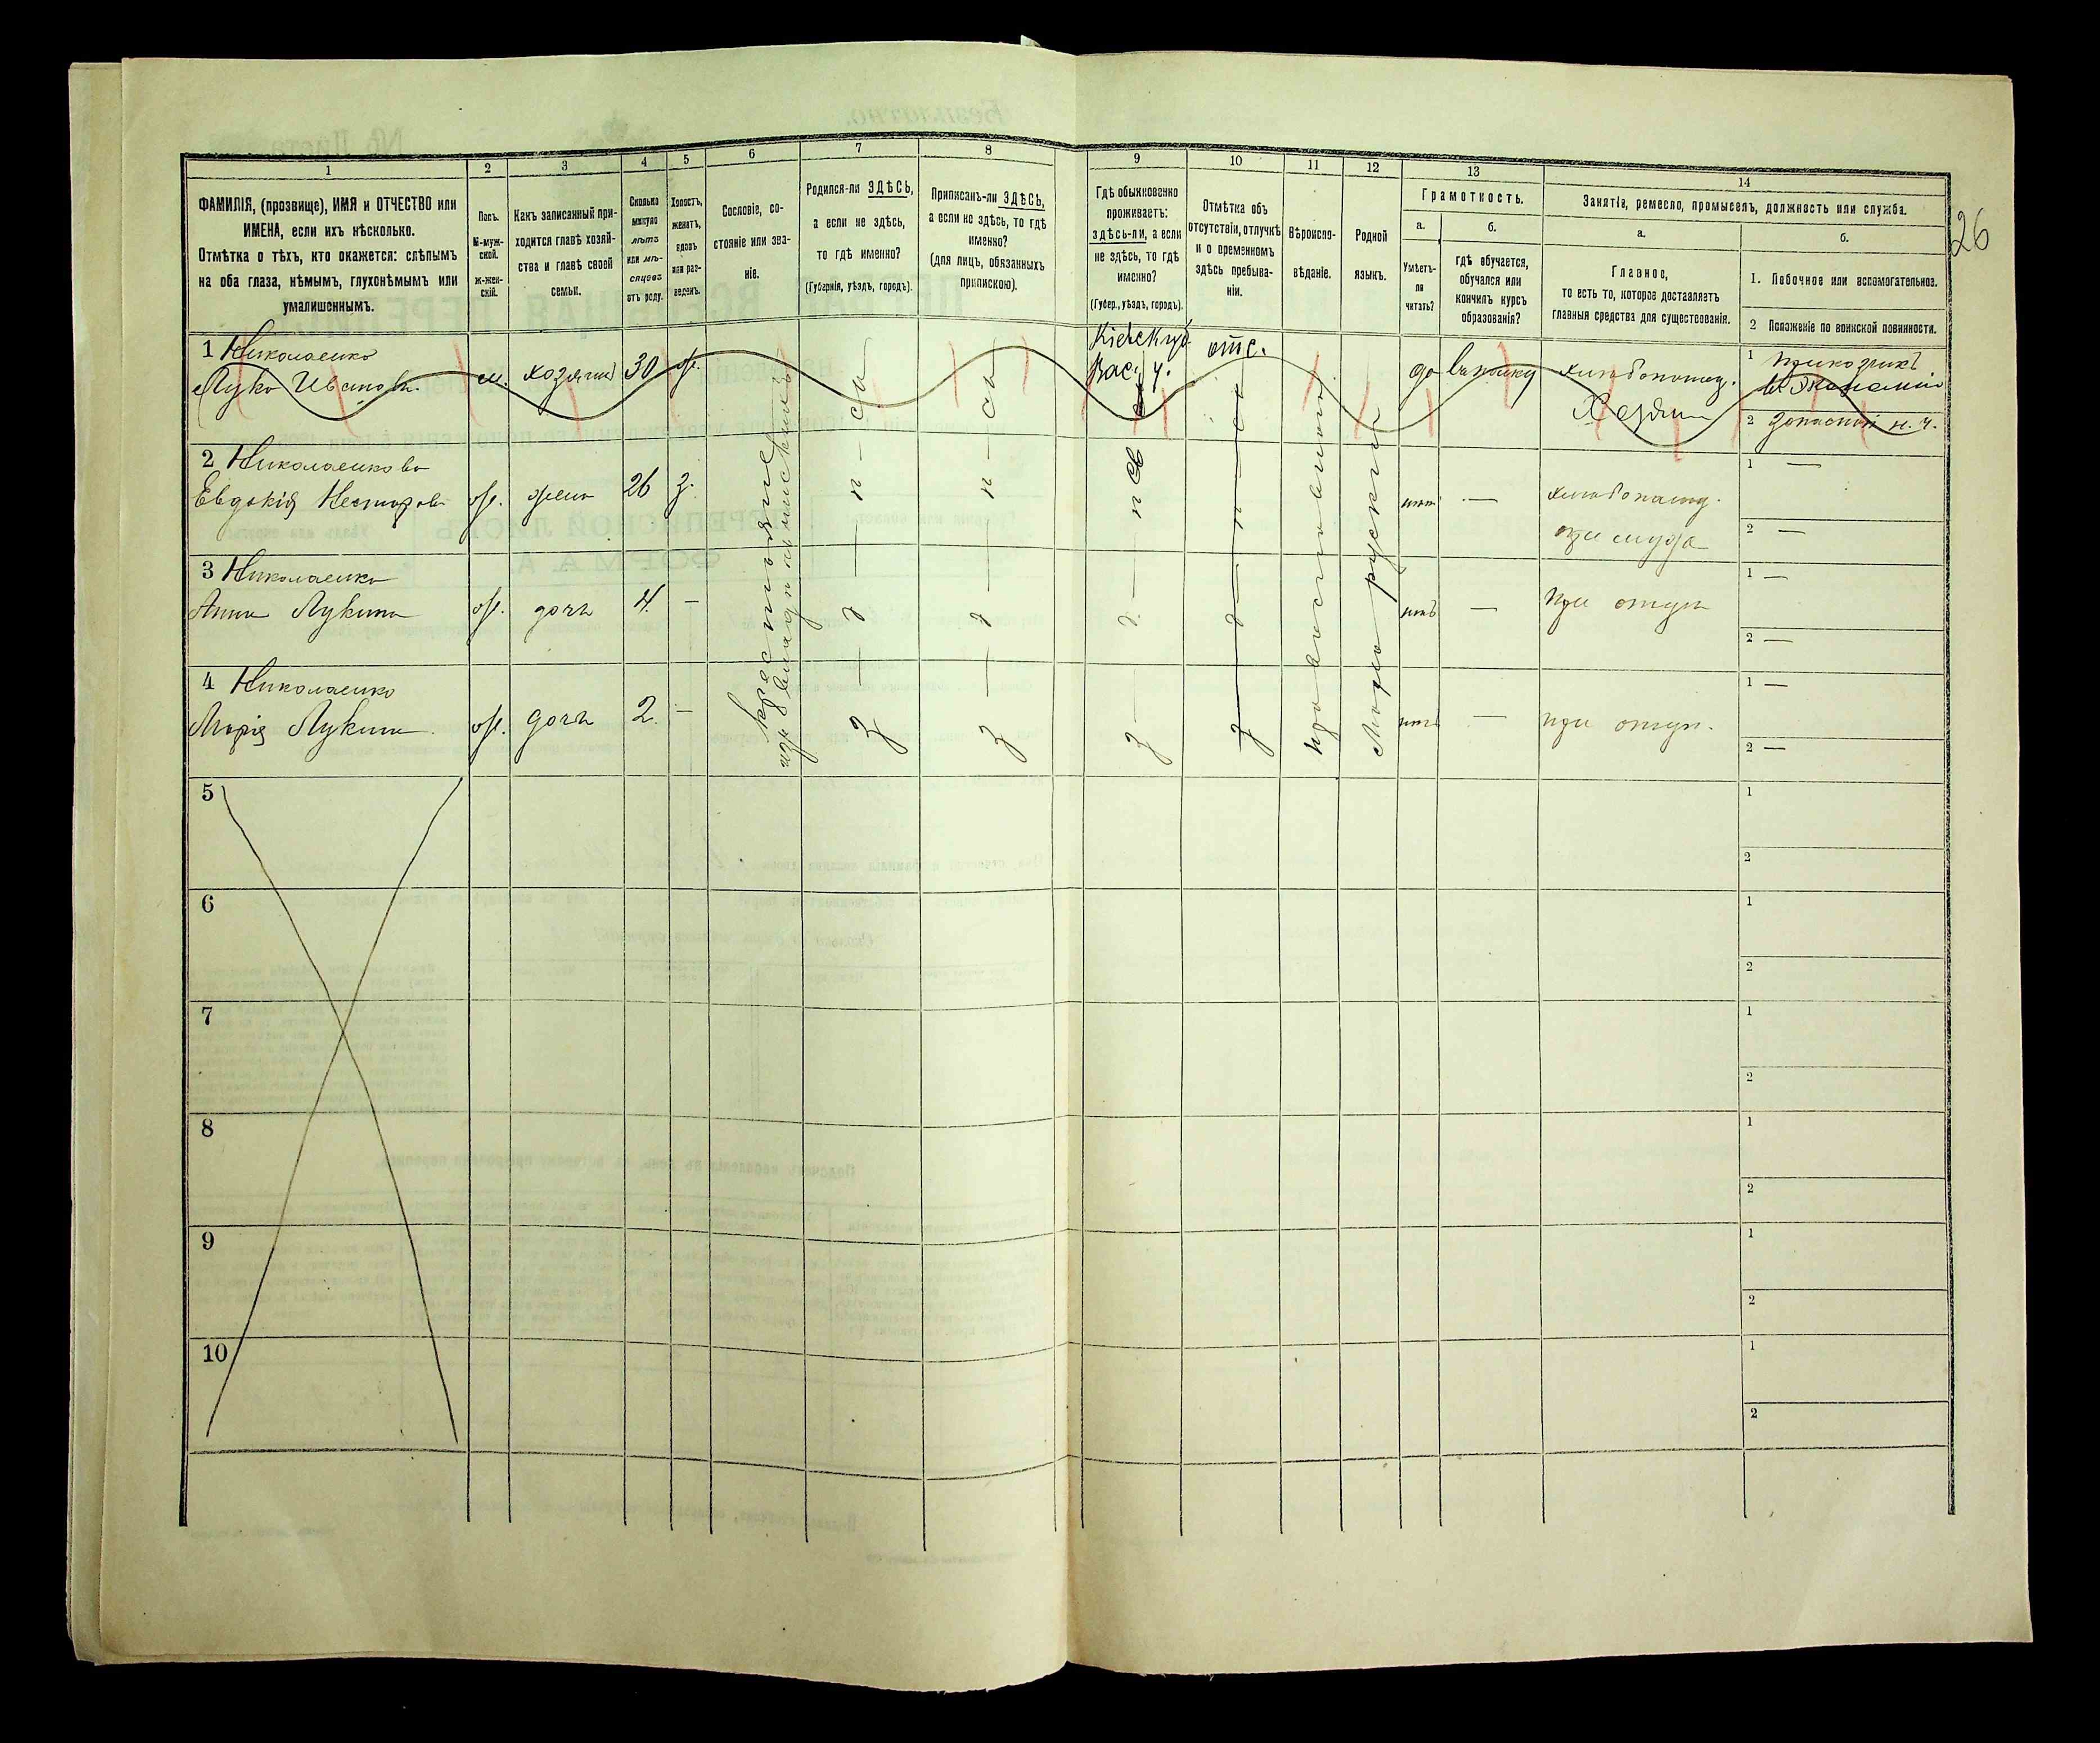 26
1
2
3
4
5
6
7
8
9
10
11
12
13
14
ФАМИЛІЯ, (прозвище), ИМЯ и ОТЧЕСТВО или
ИМЕНА, если ихъ нѣсколько.
Отмѣтка о тѣхъ, кто окажется: слѣпымъ
на оба глаза, нѣмымъ, глухонѣмымъ или
умалишеннымъ.
Полъ.
М-муж-
ской.
ж-жен-
скій.
Какъ записанный при-
ходится главѣ хозяй-
ства и главѣ своей
семьи.
Сколько
минуло
лѣтъ
или мѣ-
сяцевъ
отъ роду.
Холостъ,
женатъ,
вдовъ
или раз-
веденъ.
Сословіе, со-
стояніе или зва-
ніе.
Родился-ли ЗДѢСЬ,
а если не здѣсь,
то гдѣ именно?
(Губернія, уѣздъ, городъ).
Приписанъ-ли ЗДѢСЬ,
а если не здѣсь, то гдѣ
именно?
(для лицъ, обязанныхъ
припискою).
Гдѣ обыкновенно
проживаетъ:
здѣсь-ли, а если
не здѣсь, то гдѣ
именно?
(Губер., уѣздъ, городъ).
Отмѣтка объ
отсутствіи, отлучкѣ
и о временномъ
здѣсь пребыва-
ніи.
Вѣроиспо-
вѣданіе.
Родной
языкъ.
Грамотность.
а.
Умѣетъ-
ли
читать?
б.
гдѣ обучается,
обучался или
кончилъ курсъ
образованія?
Занятія, ремесло, промыселъ, должность или служба.
а.
Главное,
то есть то, которое доставляетъ
главныя средства для существованія.
б.
1. Побочное или вспомогательное.
2 Положеніе по воинской повинности.
1 Николаенко
Лука Иванов.
м. хозяин 30 ж.
отс.
да
хлѣбопашец.
Хозяин
1
2 Запасной н. ч.
2 Николаенкова
Евдокія Несторов
ж. жена 26 з.
нѣт —
хлѣбопашец.
при мужѣ
1 —
2 —
3 Николаенко
Анна Лукина
ж. дочь 4. —
нѣтъ —
при отцѣ
1 —
2 —
4 Николаенко
Марія Лукина
ж. дочь 2. —
нѣтъ —
при отцѣ.
1 —
2 —
крестьяне
изъ владѣльческихъ
здѣсь
здѣсь
здѣсь
православный
Малорусскій
5
1
2
6
1
2
7
1
2
8
1
2
9
1
2
10
1
2